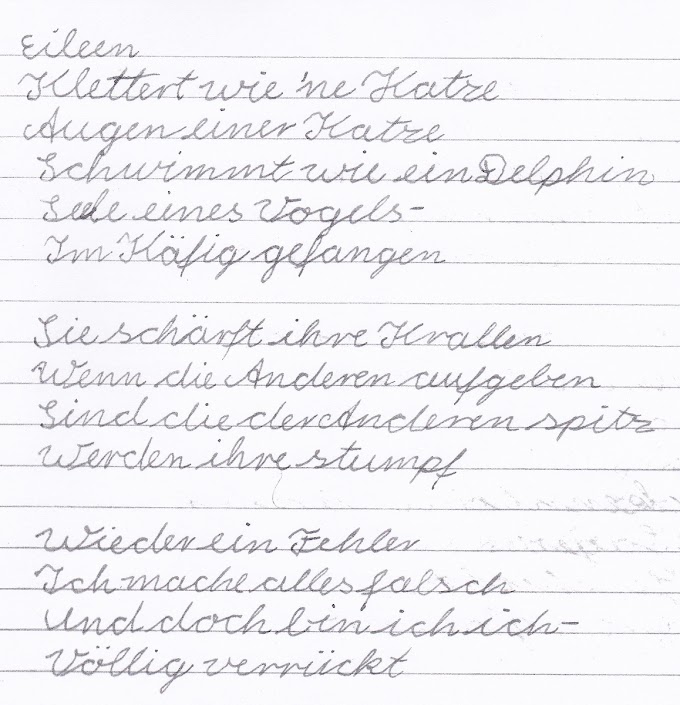 Eileen
Klettert wie 'ne Katze
Augen einer Katze
Schwimmt wie ein Delphin
Seele eines Vogels-
Im Käfig gefangen
Sie schärft ihre Krallen
Wenn die Anderen aufgeben
Sind die der Anderen spitz
Werden ihre stumpf
Wieder ein Fehler
Ich mache alles falsch
Und doch bin ich ich-
Völlig verrückt